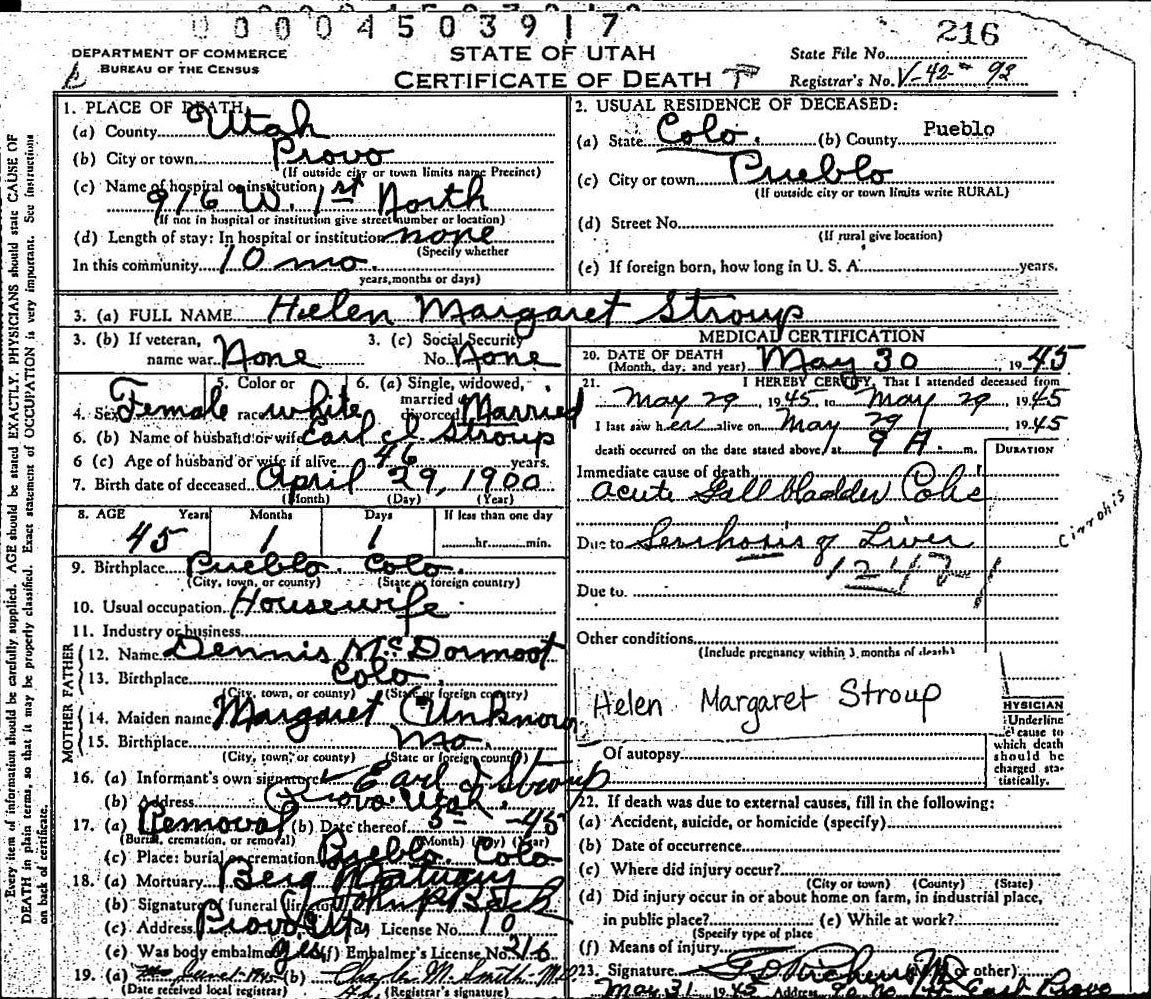 0 0 0 0 4 5 0 3 9 1 7
216
DEPARTMENT OF COMMERCE
BUREAU OF THE CENSUS
STATE OF UTAH
CERTIFICATE OF DEATH
State File No.
Registrar's No. V-42-92
Every item of information should be carefully supplied. AGE should be stated EXACTLY. PHYSICIANS should state CAUSE OF
DEATH in plain terms, so that it may be properly classified. Exact statement of OCCUPATION is very important. See instructions
on back of certificate.
1. PLACE OF DEATH
(a) County Utah
(b) City or town Provo
(If outside city or town limits name Precinct)
(c) Name of hospital or institution
916 W. 1st North
(If not in hospital or institution give street number or location)
(d) Length of stay: In hospital or institution none
(Specify whether
In this community 10 mo.
years, months or days)
2. USUAL RESIDENCE OF DECEASED:
(a) State Colo. (b) County Pueblo
(c) City or town Pueblo
(If outside city or town limits write RURAL)
(d) Street No.
(If rural give location)
(e) If foreign born, how long in U. S. A. years.
3. (a) FULL NAME Helen Margaret Stroup
3. (b) If veteran, name war None
3. (c) Social Security No. None
4. Sex Female
5. Color or race white
6. (a) Single, widowed, married or divorced Married
6. (b) Name of husband or wife Earl J Stroup
6 (c) Age of husband or wife if alive 46 years.
7. Birth date of deceased April 29, 1900
(Month) (Day) (Year)
8. AGE Years Months Days If less than one day
45 1 1 hr. min.
9. Birthplace Pueblo. Colo.
(City, town, or county) (State or foreign country)
10. Usual occupation Housewife
11. Industry or business
FATHER
12. Name Dennis McDormoot
13. Birthplace Colo.
(City, town, or county) (State or foreign country)
MOTHER
14. Maiden name Margaret Unknown
15. Birthplace Mo.
(City, town, or county) (State or foreign country)
16. (a) Informant's own signature Earl J Stroup
(b) Address Provo Utah.
17. (a) Removal (b) Date thereof 5- -45
(Burial, cremation, or removal) (Month) (Day) (Year)
(c) Place: burial or cremation Pueblo. Colo
18. (a) Mortuary Berg Mortuary
(b) Signature of funeral director John P Back
(c) Address Provo Ut (d) License No. 10
(e) Was body embalmed yes (f) Embalmer's License No. 216
19. (a) June 1-1945 (b) Charles M. Smith-M.D
(Date received local registrar) (Registrar's signature)
MEDICAL CERTIFICATION
20. DATE OF DEATH
(Month, day, and year) May 30, 1945
21. I HEREBY CERTIFY, That I attended deceased from
May 29, 1945, to May 29, 1945
I last saw her alive on May 29, 1945
death occurred on the date stated above, at 9 A. m.
DURATION
Immediate cause of death
acute Gallbladder Colic
Due to Serrhosis of Liver
Cirrohis
124
Due to.
Other conditions
(Include pregnancy within 3 months of death)
Helen Margaret Stroup
Of autopsy
PHYSICIAN
Underline
cause to
which death
should be
charged sta-
tistically.
22. If death was due to external causes, fill in the following:
(a) Accident, suicide, or homicide (specify)
(b) Date of occurrence
(c) Where did injury occur?
(City or town) (County) (State)
(d) Did injury occur in or about home, on farm, in industrial place,
in public place? (e) While at work?
(Specify type of place
(f) Means of injury
23. Signature (M.D. or other)
May 31 1945 Address East Provo